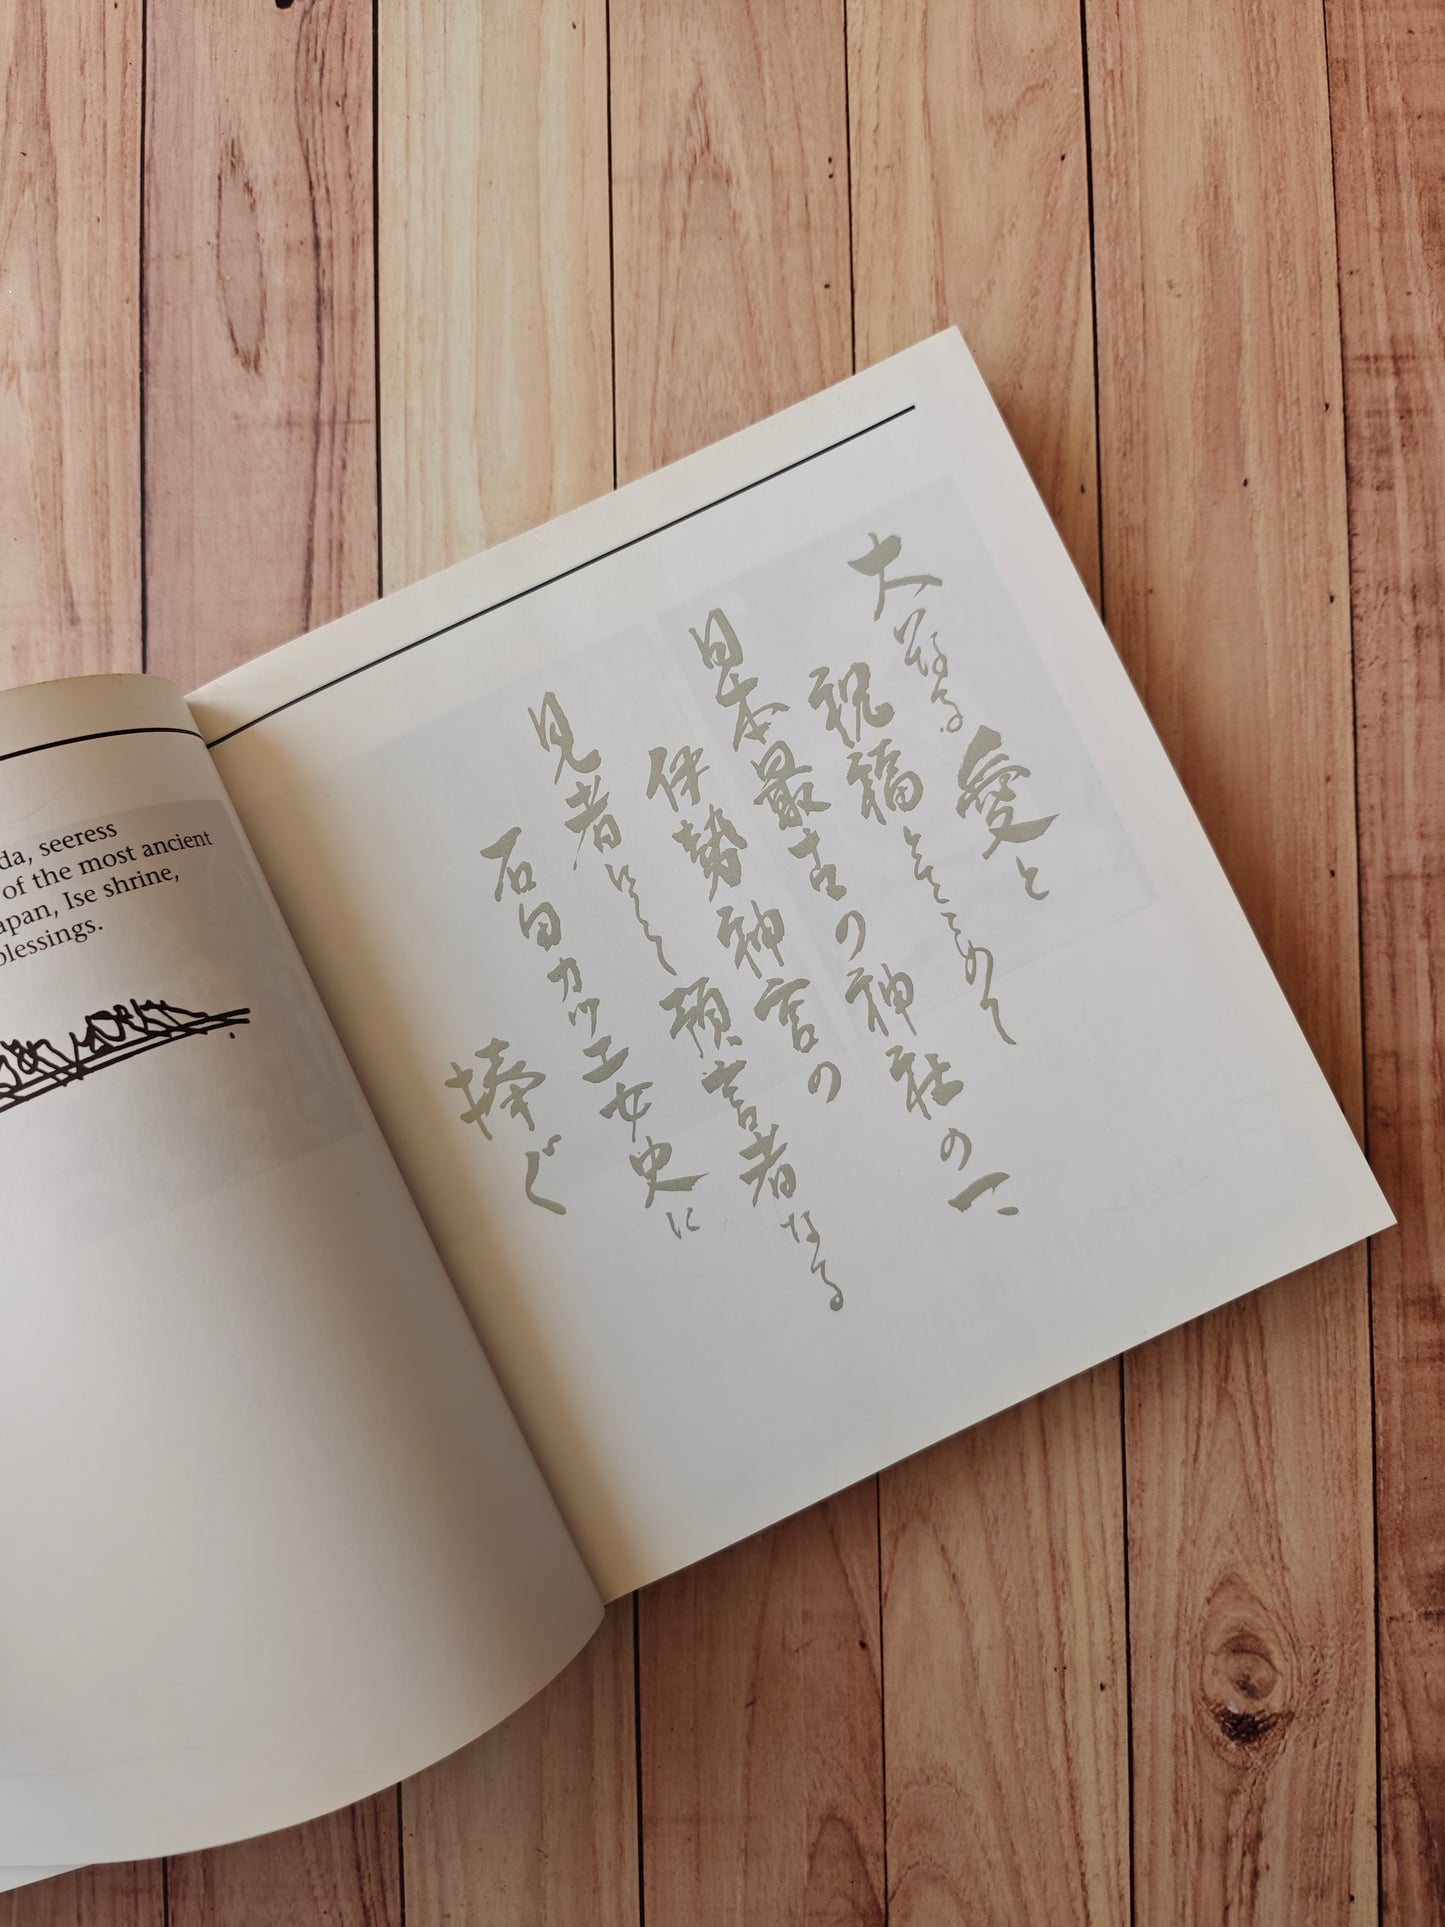 da, seeress
of the most ancient
apan, Ise shrine,
blessings.
大いなる愛と
祝福をこめて
日本最古の神社の一、
伊勢神宮の
見者にして預言者なる
石田カツエ女史に
捧ぐ